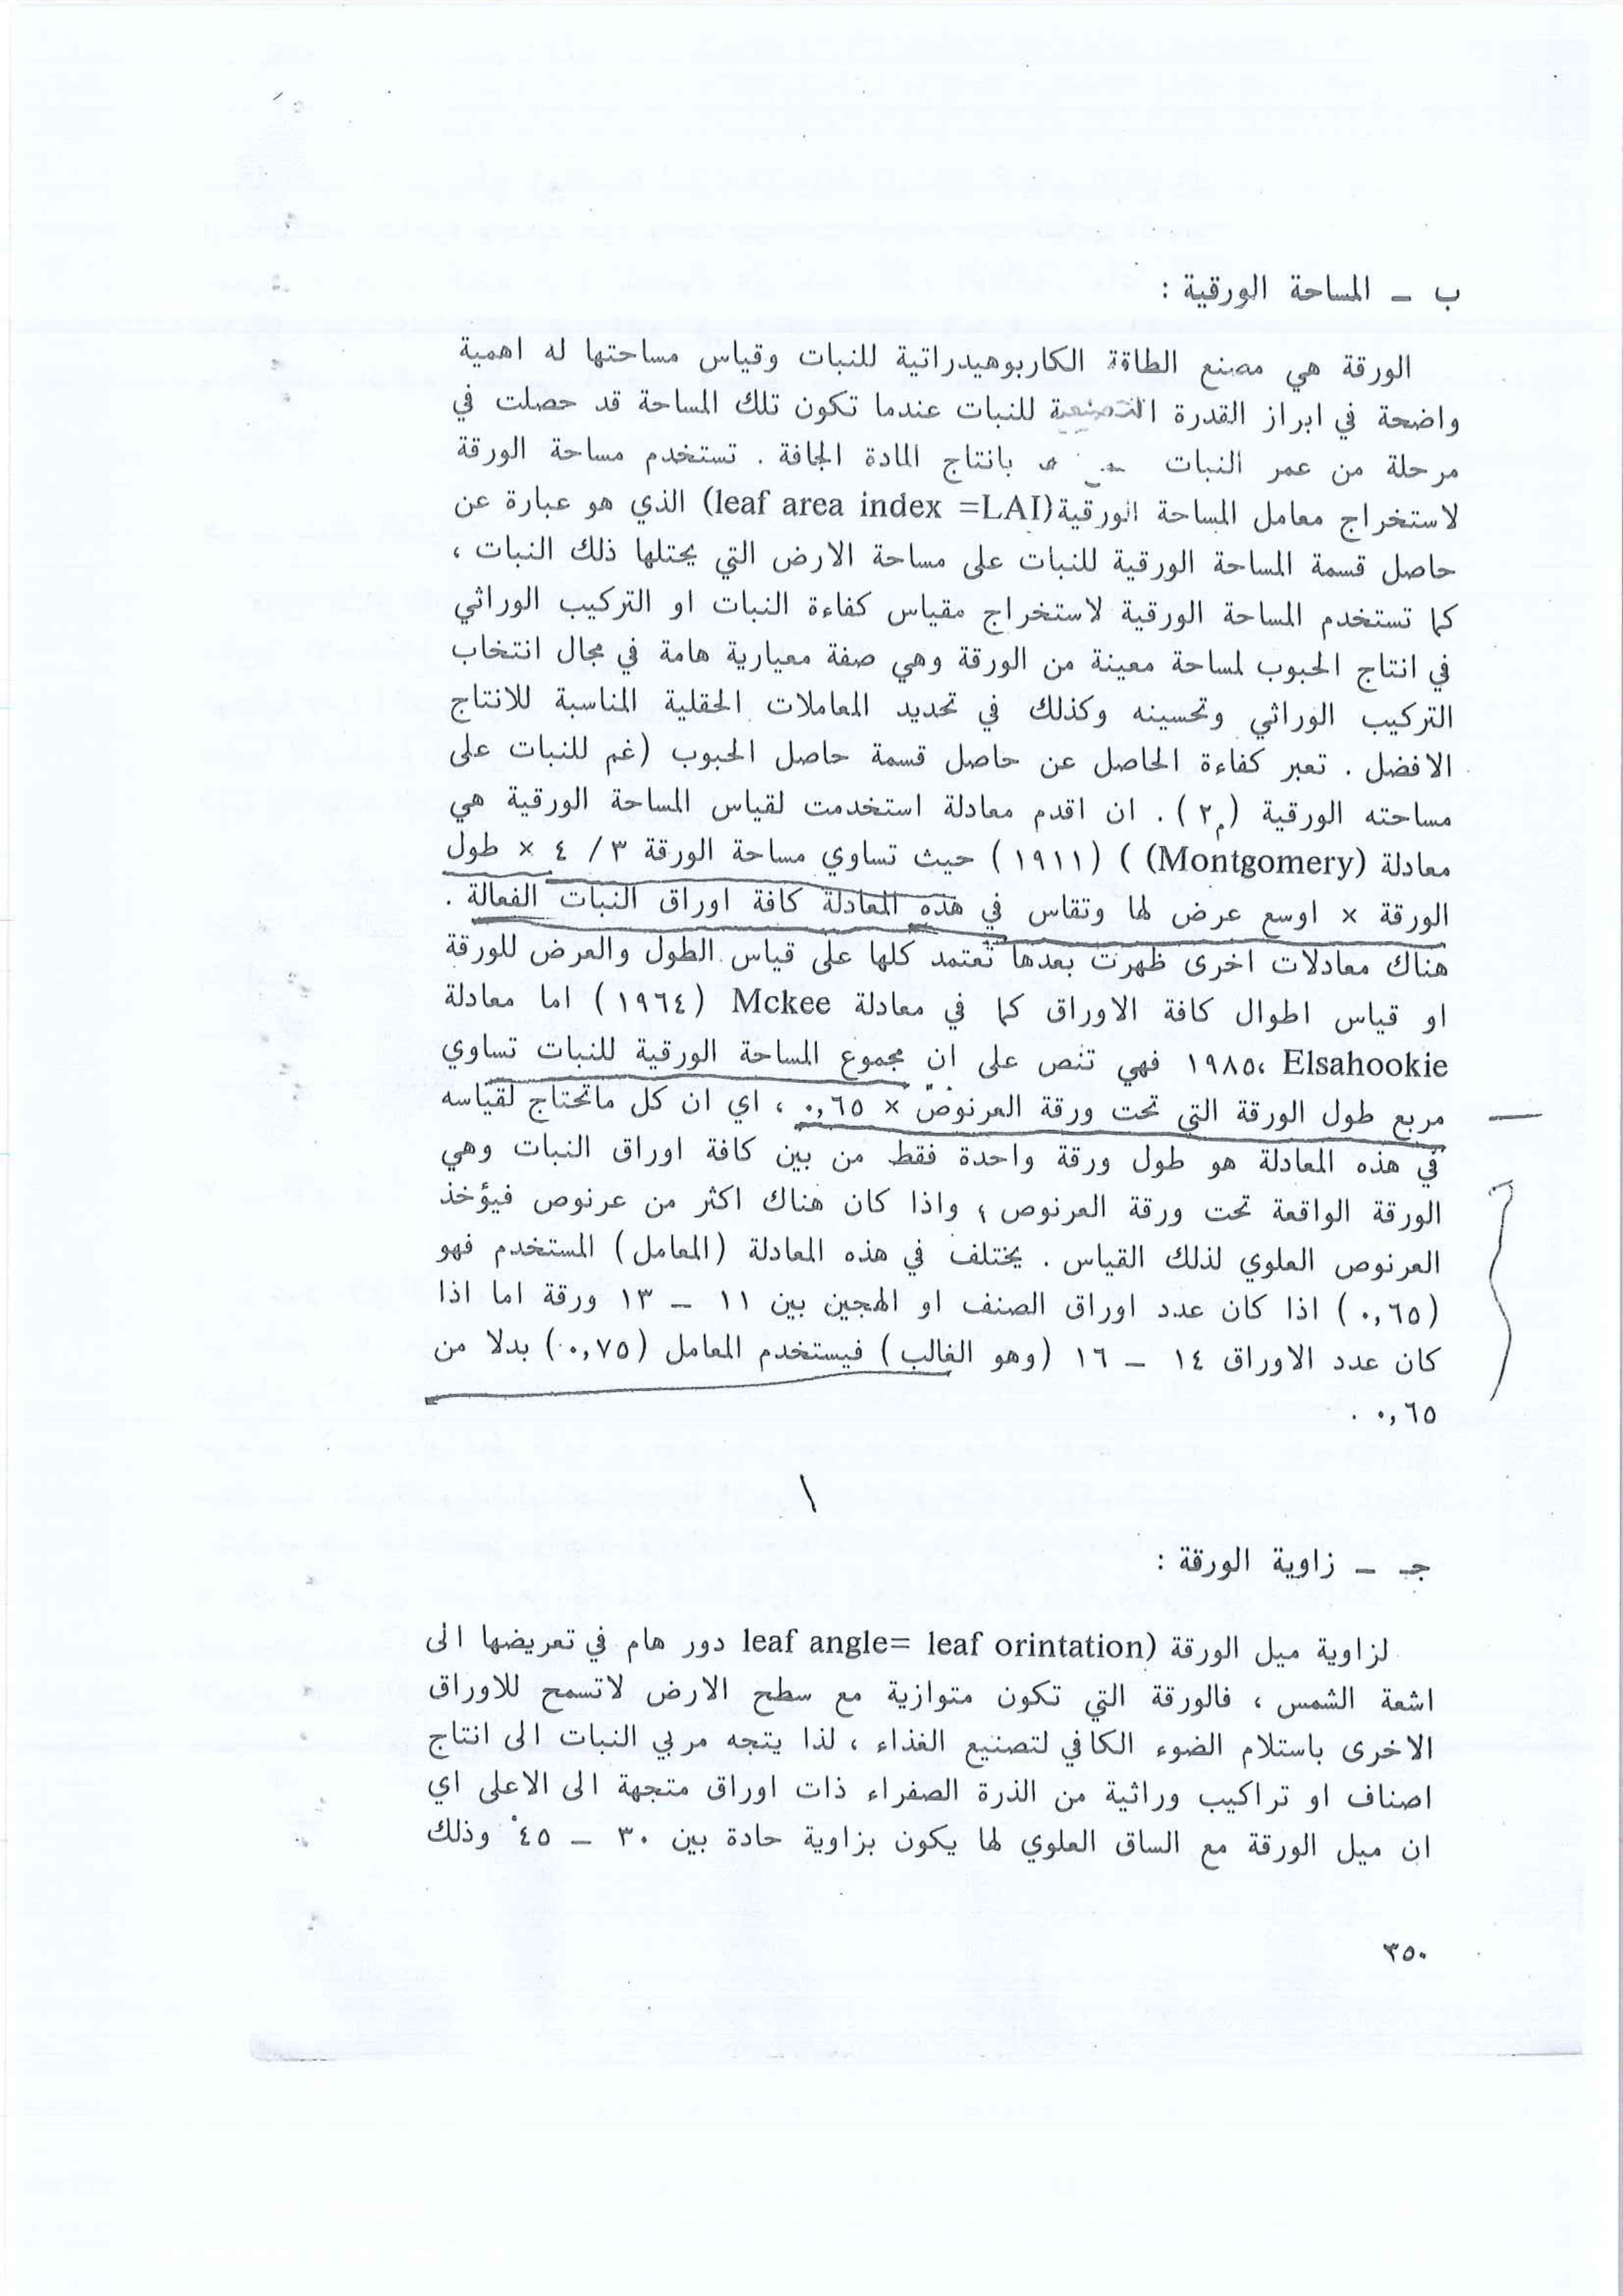 ب - المساحة الورقية :
الورقة هي مصنع الطاقة الكاربوهيدراتية للنبات وقياس مساحتها له اهمية
واضحة في ابراز القدرة التصنيعية للنبات عندما تكون تلك المساحة قد حصلت في
مرحلة من عمر النبات بانتاج المادة الجافة . تستخدم مساحة الورقة
لاستخراج معامل المساحة الورقية (leaf area index =LAI) الذي هو عبارة عن
حاصل قسمة المساحة الورقية للنبات على مساحة الارض التي يحتلها ذلك النبات ،
كما تستخدم المساحة الورقية لاستخراج مقياس كفاءة النبات او التركيب الوراثي
في انتاج الحبوب لمساحة معينة من الورقة وهي صفة معيارية هامة في مجال انتخاب
التركيب الوراثي وتحسينه وكذلك في تحديد المعاملات الحقلية المناسبة للانتاج
الافضل . تعبر كفاءة الحاصل عن حاصل قسمة حاصل الحبوب (غم للنبات على
مساحته الورقية (م٢) . ان اقدم معادلة استخدمت لقياس المساحة الورقية هي
معادلة (Montgomery) ) (١٩١١) حيث تساوي مساحة الورقة ٣ / ٤ × طول
الورقة × اوسع عرض لها وتقاس في هذه المعادلة كافة اوراق النبات الفعالة .
هناك معادلات اخرى ظهرت بعدها تعتمد كلها على قياس الطول والعرض للورقة
او قياس اطوال كافة الاوراق كما في معادلة Mckee (١٩٦٤) اما معادلة
Elsahookie ،١٩٨٥ فهي تنص على ان مجموع المساحة الورقية للنبات تساوي
مربع طول الورقة التي تحت ورقة العرنوص × ٠,٦٥ ، اي ان كل ماتحتاج لقياسه
في هذه المعادلة هو طول ورقة واحدة فقط من بين كافة اوراق النبات وهي
الورقة الواقعة تحت ورقة العرنوص ؛ واذا كان هناك اكثر من عرنوص فيؤخذ
العرنوص العلوي لذلك القياس . يختلف في هذه المعادلة (المعامل) المستخدم فهو
(٠,٦٥) اذا كان عدد اوراق الصنف او الهجين بين ١١ - ١٣ ورقة اما اذا
كان عدد الاوراق ١٤ - ١٦ (وهو الغالب) فيستخدم المعامل (٠,٧٥) بدلا من
٠,٦٥ .
١
جـ - زاوية الورقة :
لزاوية ميل الورقة (leaf angle= leaf orintation دور هام في تعريضها الى
اشعة الشمس ، فالورقة التي تكون متوازية مع سطح الارض لاتسمح للاوراق
الاخرى باستلام الضوء الكافي لتصنيع الغذاء ، لذا يتجه مربي النبات الى انتاج
اصناف او تراكيب وراثية من الذرة الصفراء ذات اوراق متجهة الى الاعلى اي
ان ميل الورقة مع الساق العلوي لها يكون بزاوية حادة بين ٣٠ - ٤٥° وذلك
٣٥٠